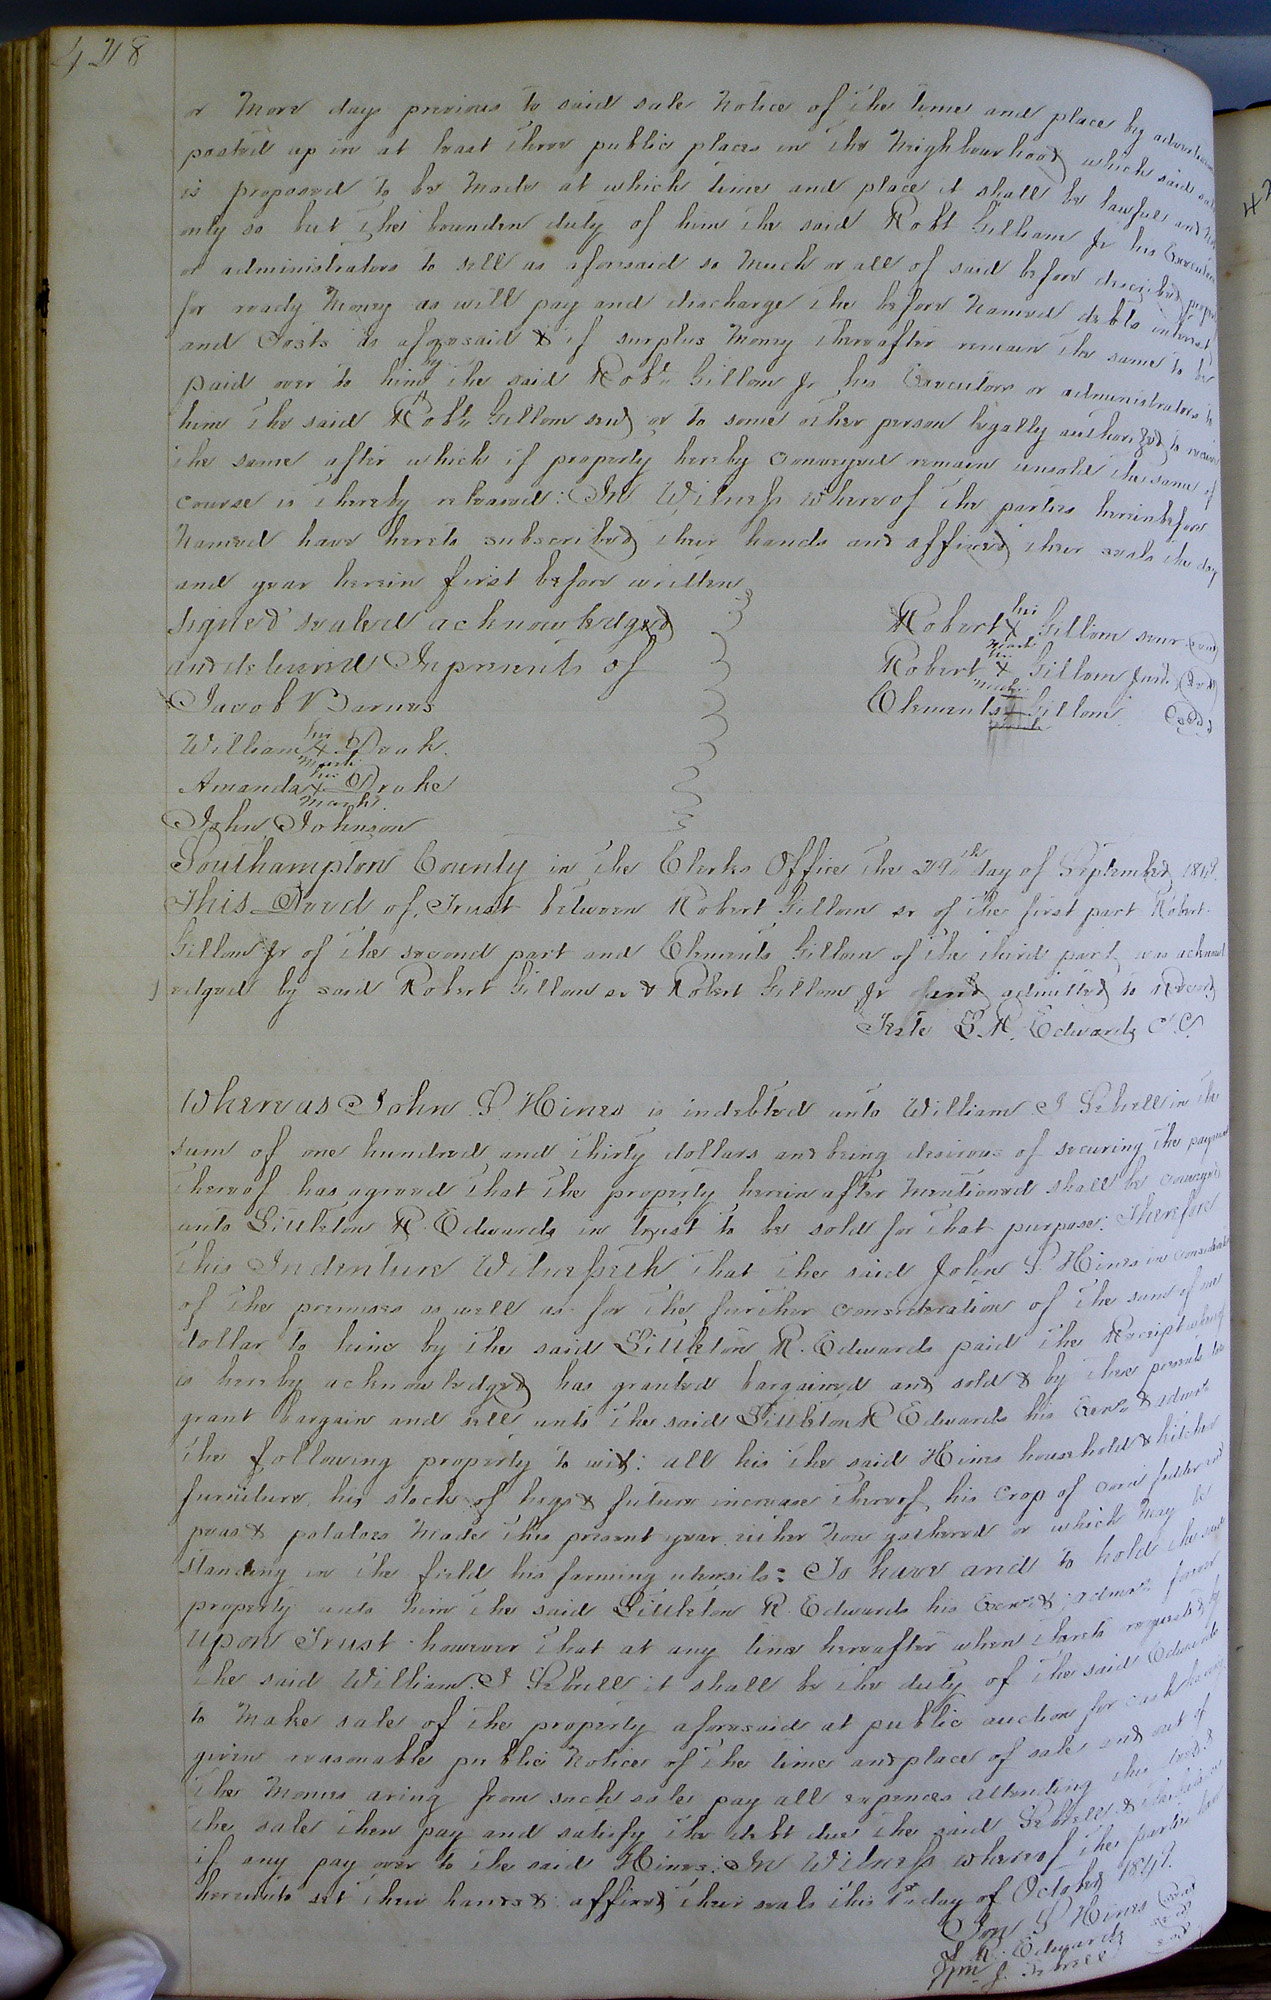 428
or more days previous to said sale notice of the time and place by
posted up in at least three public places in the Neighbourhood which said sale
is proposed to be made at which time and place it shall be lawful and not
only so but the bounden duty of him the said Robt Gilliam Jr his Executors
or administrators to sell as aforesaid so much or all of said before described
for ready money as will pay and discharge the before named debts interest
and Costs as aforesaid & if surplus money thereafter remain the same to be
paid over to him by the said Robt. Gillom Jr his Executors or administrators to
him the said Robt. Gillom senr or to some other person legally authorized to receive
the same after which if property hereby conveyed remain unsold the same of
course is thereby released: In Witness whereof the parties hereinbefore
named have hereto subscribed their hands and affixed their seals the day
and year herein first before written
Signed sealed acknowledged
and delivered In presents of
Jacob Barnes
William his X mark Drake
Amanda his X mark Drake
John Johnson
Robert his X mark Gillom senr seal
Robert his X mark Gillom Junr seal
Clements Gillom seal
Southampton County in the Clerks Office the 29th day of September 184
This Deed of Trust between Robert Gillom sr of the first part Robert
Gillom Jr of the second part and Clements Gillom of the third part was acknowl
edged by said Robert Gillom sr & Robert Gillom Jr and admitted to Record
Teste L. R. Edwards C.C.
Whereas John S Hines is indebted unto William J Sebrell in the
sum of one hundred and thirty dollars and being desirous of securing the payment
thereof has agreed that the property herein after mentioned shall be conveyed
unto Littleton R. Edwards in trust to be sold for that purpose: Therefore
This Indenture Witnesseth that the said John S. Hines in consideration
of the premises as well as for the further consideration of the sum of one
dollar to him by the said Littleton R. Edwards paid the Receipt whereof
is hereby acknowledged has granted bargained and sold & by these presents do
grant bargain and sell unto the said Littleton R Edwards his Exers & admrs
the following property to wit: all his the said Hines household & kitchen
furniture, his stock of hogs & future increase thereof, his crop of corn fodder and
peas & potatoes made this present year either now gathered or which may be
standing in the field his farming utensils: To have and to hold the said
property unto him the said Littleton R. Edwards his Exers & admrs forever
Upon Trust however that at any time hereafter when thereto requested by
the said William J Sebrell it shall be the duty of the said Edwards
to make sale of the property aforesaid at public auction for cash having
given reasonable public notice of the time and place of sale and out of
the monies arising from such sale pay all expences attending this trust &
the sale then pay and satisfy the debt due the said Sebrell &
if any pay over to the said Hines: In Witness whereof the parties have
hereunto set their hands & affixed their seals this 1st day of October 184
Jno S Hines seal
L. R. Edwards seal
Wm J. Sebrell seal